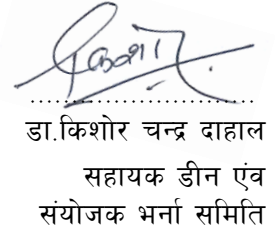 किशोर
..............................
डा.किशोर चन्द्र दाहाल
सहायक डीन एंव
संयोजक भर्ना समिति